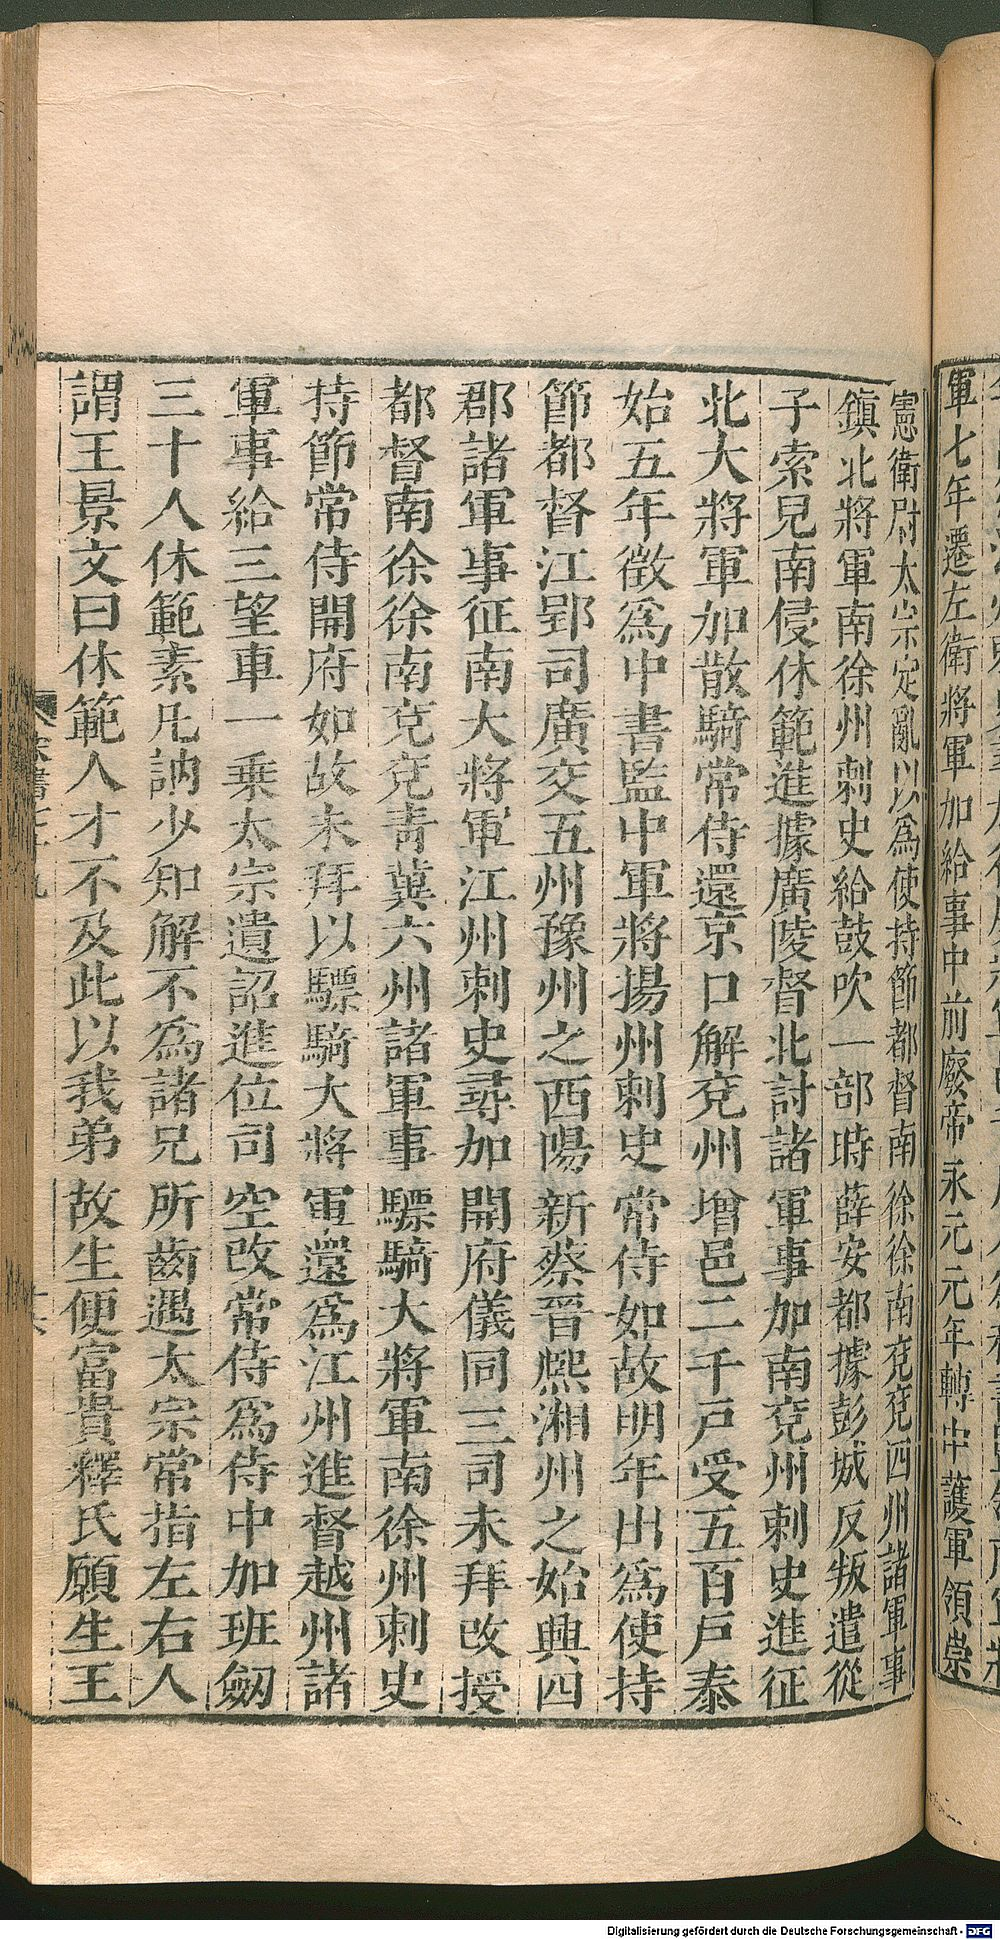 軍七年遷左衛將軍加給事中前廢帝永元元年轉中護軍領崇
憲衛尉太宗定亂以爲使持節都督南徐徐南兗兗四州諸軍事
鎮北將軍南徐州刺史給鼓吹一部時薛安都據彭城反叛遣從
子索兒南侵休範進據廣陵督北討諸軍事加南兗州刺史進征
北大將軍加散騎常侍還京口解兗州增邑二千戶受五百戶泰
始五年徵爲中書監中軍將揚州刺史常侍如故明年出爲使持
節都督江郢司廣交五州豫州之西陽新蔡晉熙湘州之始興四
郡諸軍事征南大將軍江州刺史尋加開府儀同三司未拜改授
都督南徐徐南兗兗青冀六州諸軍事驃騎大將軍南徐州刺史
持節常侍開府如故未拜以驃騎大將軍還爲江州進督越州諸
軍事給三望車一乗太宗遺詔進位司空改常侍爲侍中加班劒
三十人休範素凡訥少知解不爲諸兄所齒遇太宗常指左右人
謂王景文曰休範人才不及此以我弟故生便富貴釋氏願生王
Digitalisierung gefördert durch die Deutsche Forschungsgemeinschaft - DFG